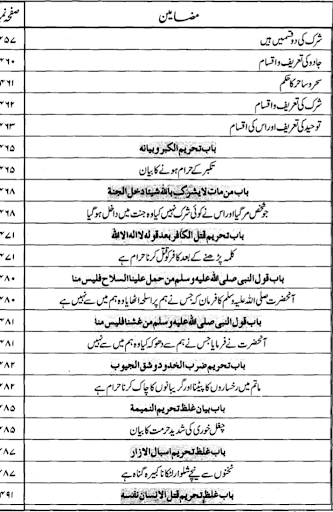 مضامین صفحہ نمبر
شرک کی دو قسمیں ہیں ۴۵۷
جادو کی تعریف و اقسام ۴۶۰
سحر و ساحر کا حکم ۴۶۱
شرک کی تعریف و اقسام ۴۶۲
توحید کی تعریف اور اس کی اقسام ۴۶۳
باب تحریم الکبر و بیانه ۴۶۵
تکبر کے حرام ہونے کا بیان ۴۶۵
باب من مات لا یشرک بالله شیئا دخل الجنة ۴۶۸
جو شخص مر گیا اور اس نے کوئی شرک نہیں کیا وہ جنت میں داخل ہو گیا ۴۶۸
باب تحریم قتل الکافر بعد قوله لا اله الا الله ۴۷۱
کلمہ پڑھنے کے بعد کافر کو قتل کرنا حرام ہے ۴۷۱
باب قول النبی صلی الله علیه وسلم من حمل علینا السلاح فلیس منا ۴۸۰
آنحضرت صلی اللہ علیہ وسلم کا فرمان کہ جس نے ہم پر اسلحہ اٹھایا وہ ہم میں سے نہیں ہے ۴۸۰
باب قول النبی صلی الله علیه وسلم من غشنا فلیس منا ۴۸۱
آنحضرت نے فرمایا جس نے ہم سے دھوکہ کیا وہ ہم میں سے نہیں ۴۸۱
باب تحریم ضرب الخدود و شق الجیوب ۴۸۲
ماتم میں رخساروں کا پیٹنا اور گریبانوں کا چاک کرنا حرام ہے ۴۸۲
باب بیان غلظ تحریم النمیمة ۴۸۵
چغل خوری کی شدید حرمت کا بیان ۴۸۵
باب غلظ تحریم اسبال الازار ۴۸۷
ٹخنوں سے نیچے شلوار لٹکانا کبیرہ گناہ ہے ۴۸۷
باب غلظ تحریم قتل الانسان نفسه ۴۹۱